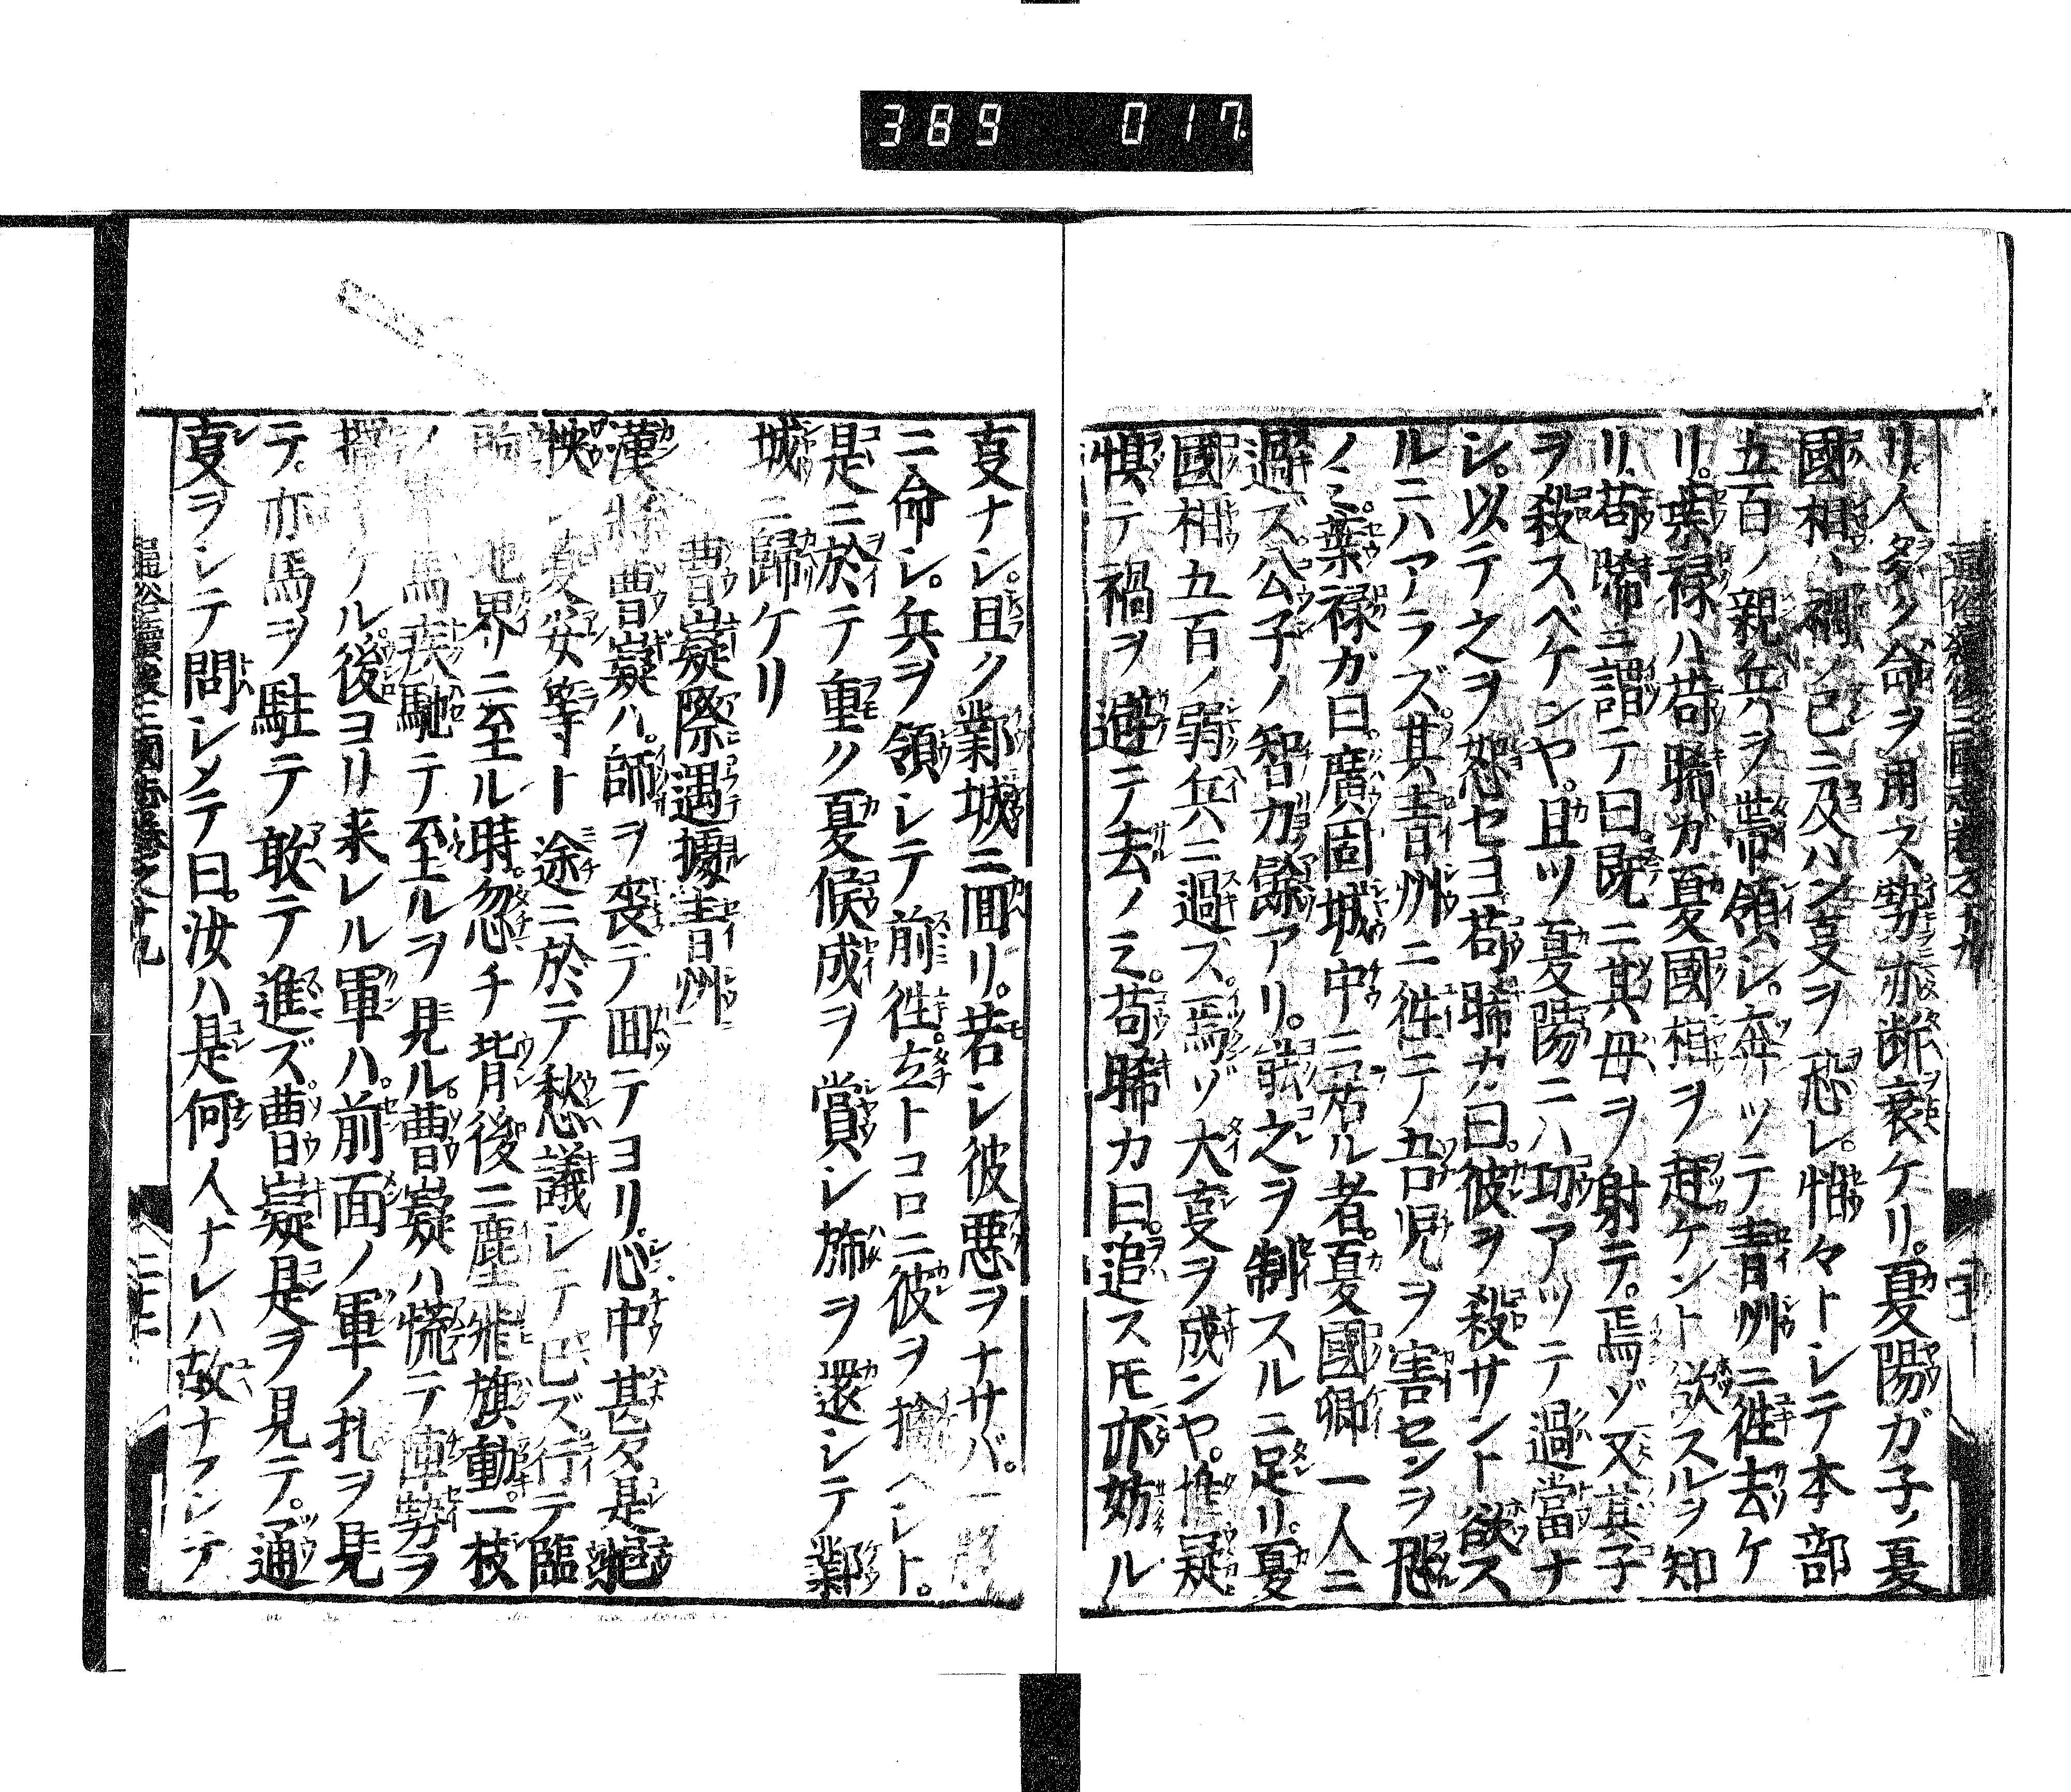 389 017
リ。人多ク命ヲ用ス勢亦漸衰ケリ。夏陽ガ子ノ夏
國相ハ禍ノ己ニ及ハン㕝ヲ恐レ。惴々トレテ本部
五百ノ親兵ヲ帯領シ。奔ツテ青州ニ徃去ケ
リ。葉禄ハ苟晞カ夏國相ヲ赶ケント欲スルヲ知
リ。苟晞ニ謂テ曰。既ニ其母ヲ射テ。焉ゾ又其子
ヲ殺スベケンヤ。且ツ夏陽ニハ功アツテ過當ナ
シ。以テ之ヲ恕セヨ苟晞カ曰。彼ヲ殺サント欲ス
ルニハアラズ其青州ニ徃テ吾児ヲ害センヲ恐
ノミ。葉禄ガ曰廣固城中ニ居ル者。夏國卿一人ニ
過ズ。公子ノ智力綽アリ。能之ヲ制スルニ足リ。夏
國相五百ノ弱兵ニ過ズ。焉ゾ大㕝ヲ成ンヤ。惟疑
懼テ禍ヲ避テ去ノミ。苟晞カ曰。追スモ亦妨ル
㕝ナシ。且ク鄴城ニ囬リ。若レ彼悪ヲナサバ。一
ニ命レ。兵ヲ領レテ前徃立トコロニ彼ヲ擒ヘレト。
是ニ於テ重ク夏候成ヲ賞レ旆ヲ還レテ鄴
城ニ歸ケリ
曹嶷際遇據青州
漢將曹嶷ハ。師ヲ喪テ囬テヨリ。心中甚タ是怏
怏夏安等ト途ニ於テ愁議レテ已ズ行テ臨
朐地界リニ至ル時。忽チ背後ニ塵飛旗動一枝
ノ軍馬疾馳テ至ルヲ見ル。曹嶷ハ慌テ陣勢ヲ
擺ケル後ヨリ来レル軍ハ。前面ノ軍ノ扎ヲ見
テ。亦馬ヲ駐テ敢テ進ズ。曹嶷是ヲ見テ。通
㕝ヲシテ問レメテ曰。汝ハ是何人ナレハ故ナフシテ
通俗續後三國志卷之十九
二十二